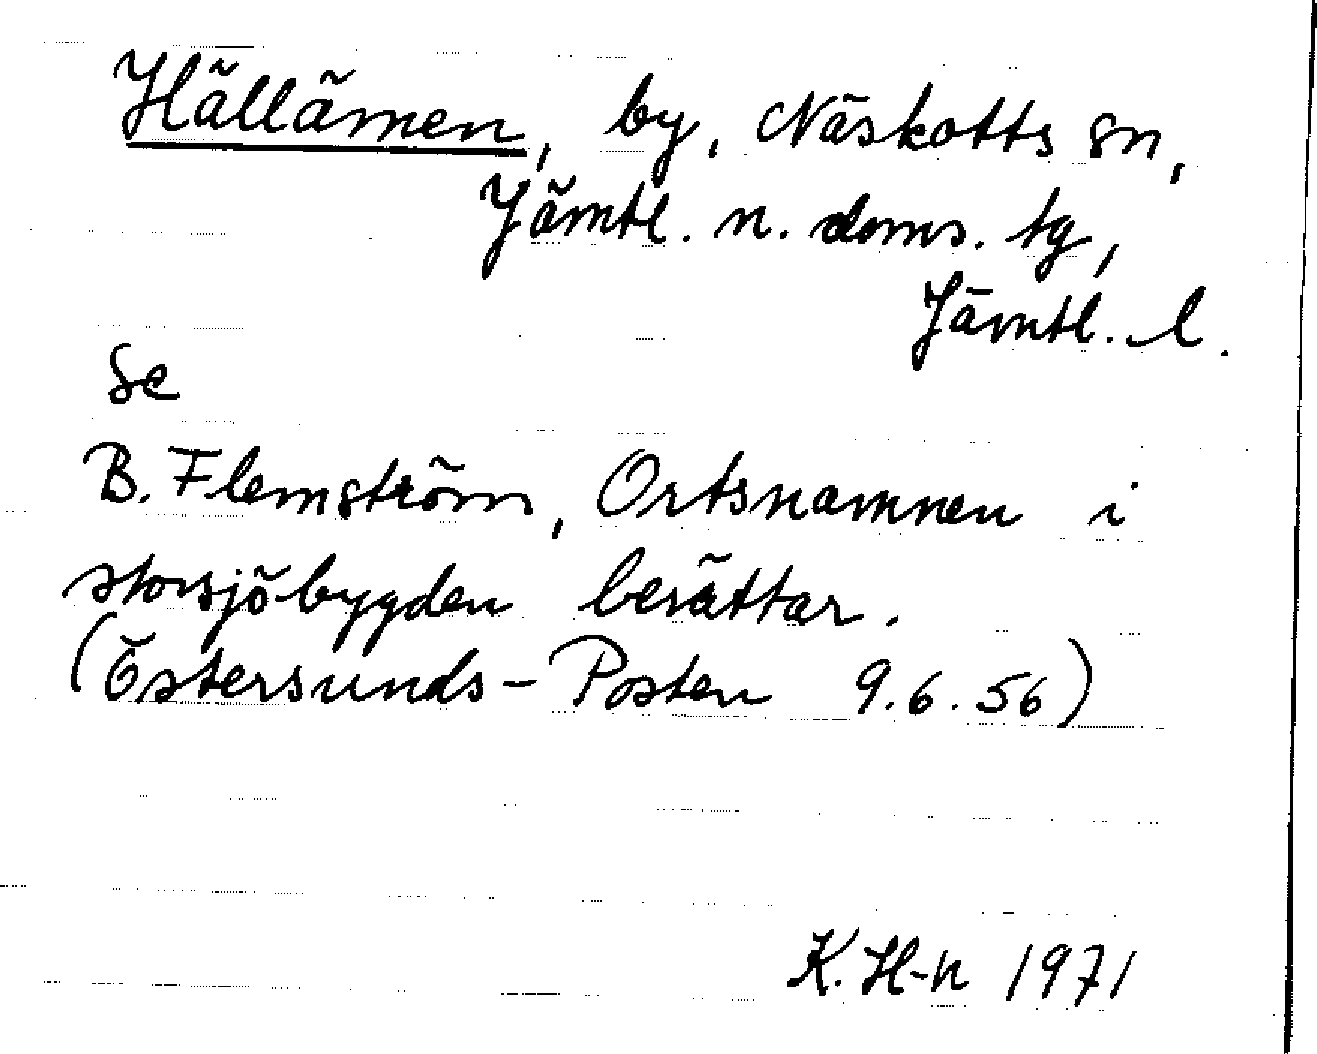 Hällämen, by, Näskotts sn,
Jämtl. n. doms. tg,
Jämtl. l.
Se
B. Flemström, Ortsnamnen i
storsjöbygden berättar.
(Östersunds-Posten 9.6.56)
K. H-n 1971